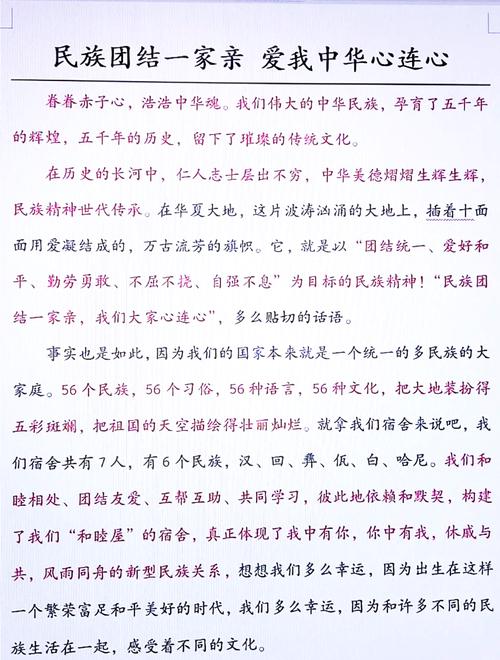 民族团结一家亲 爱我中华心连心
眷眷赤子心，浩浩中华魂。我们伟大的中华民族，孕育了五千年
的辉煌，五千年的历史，留下了璀璨的传统文化。
在历史的长河中，仁人志士层出不穷，中华美德熠熠生辉生辉，
民族精神世代传承。在华夏大地，这片波涛汹涌的大地上，插着十面
面用爱凝结成的，万古流芳的旗帜。它，就是以“团结统一、爱好和
平、勤劳勇敢、不屈不挠、自强不息”为目标的民族精神！“民族团
结一家亲，我们大家心连心”，多么贴切的话语。
事实也是如此，因为我们的国家本来就是一个统一的多民族的大
家庭。56个民族，56个习俗，56种语言，56种文化，把大地装扮得
五彩斑斓，把祖国的天空描绘得壮丽灿烂。就拿我们宿舍来说吧，我
们宿舍共有7人，有6个民族，汉、回、彝、佤、白、哈尼。我们和
睦相处、团结友爱、互帮互助、共同学习，彼此地依赖和默契，构建
了我们“和睦屋”的宿舍，真正体现了我中有你，你中有我，休戚与
共，风雨同舟的新型民族关系，想想我们多么幸运，因为出生在这样
一个繁荣富足和平美好的时代，我们多么幸运，因为和许多不同的民
族生活在一起，感受着不同的文化。